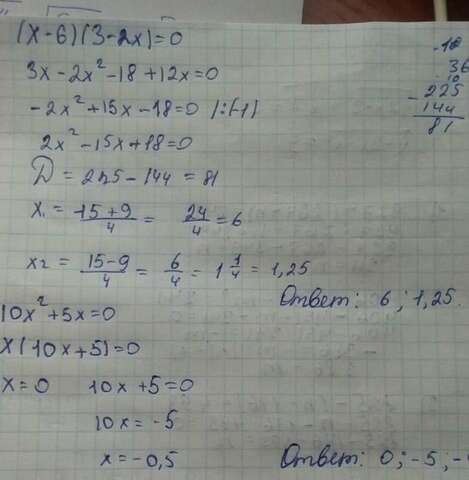 (x-6)(3-2x)=0
3x-2x²-18+12x=0
-2x²+15x-18=0 |:(-1)
2x²-15x+18=0
D = 225-144 = 81
x₁ = 15+9/4 = 24/4 = 6
x₂ = 15-9/4 = 6/4 = 1 1/4 = 1,25
Ответ: 6 ; 1,25
10x²+5x=0
x(10x+5)=0
x=0 10x+5=0
10x = -5
x = -0,5
Ответ: 0 ; -5 ; -
36
10
225
- 144
81